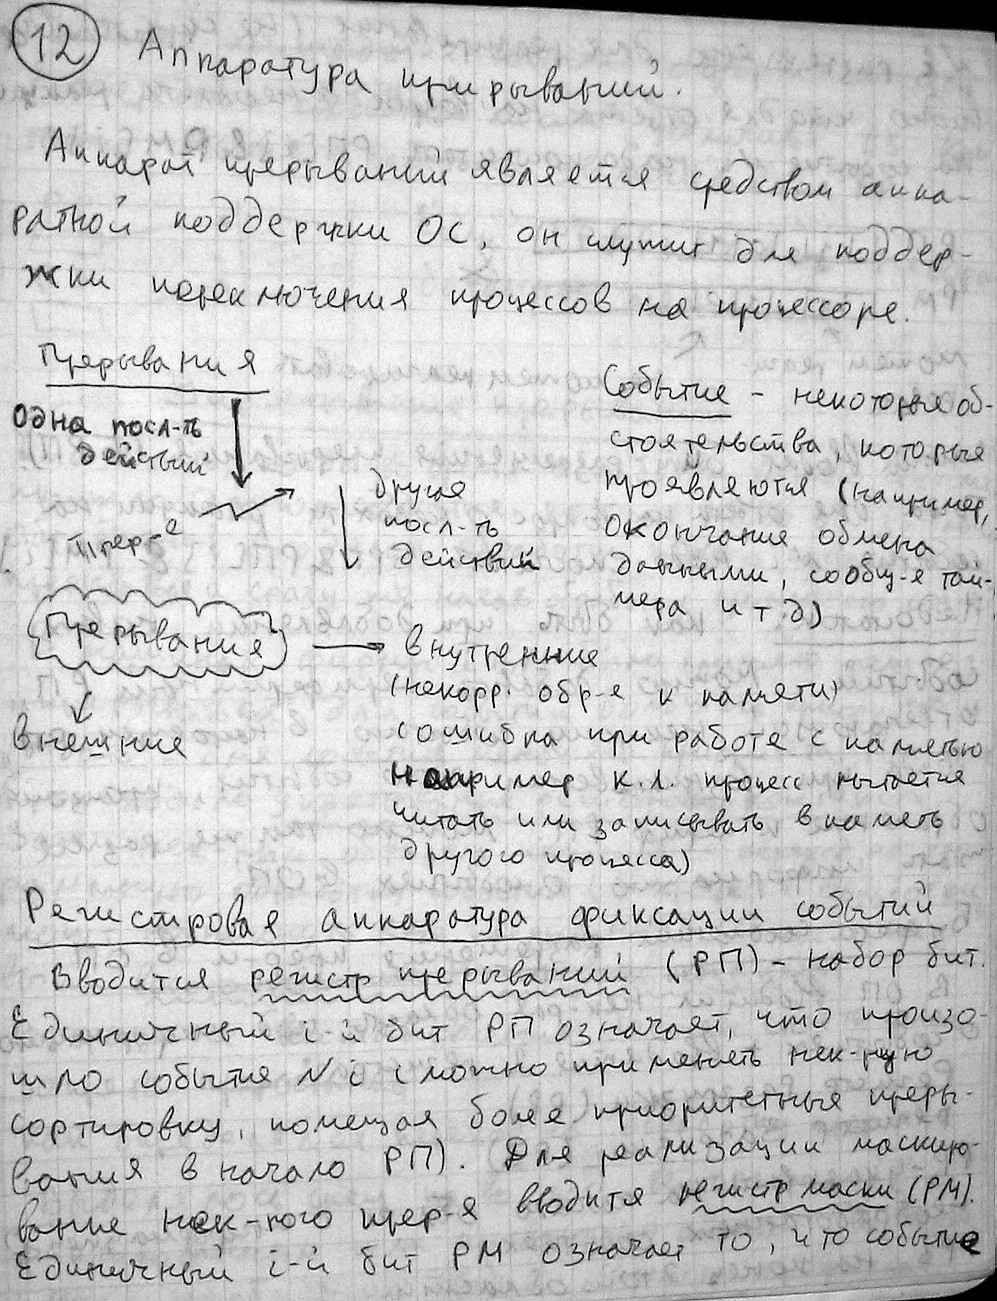 12 Аппаратура прерываний.
Аппарат прерываний является средством аппа-
ратной поддержки ОС, он служит для поддер-
жки переключения процессов на процессоре.
Прерывания
одна посл-ть
действий
Прер-е
другая
посл-ть
действий
Событие - некоторые об-
стоятельства, которые
проявляются (например,
окончание обмена
данными, сообщ-я тай-
мера и т д)
Прерывания
внешние
внутренние
(некорр. обр-е к памяти)
(ошибка при работе с памятью
например к.л. процесс пытается
читать или записывать в память
другого процесса)
Регистровая аппаратура фиксации событий
Вводится регистр прерываний (РП) - набор бит.
Единичный i-й бит РП означает, что произо-
шло событие N i (можно применять нек-рую
сортировку, помещая более приоритетные преры-
вания в начало РП). Для реализации маскиро-
вание нек-рого прер-я вводится регистр маски (РМ).
Единичный i-й бит РМ означает то, что событие